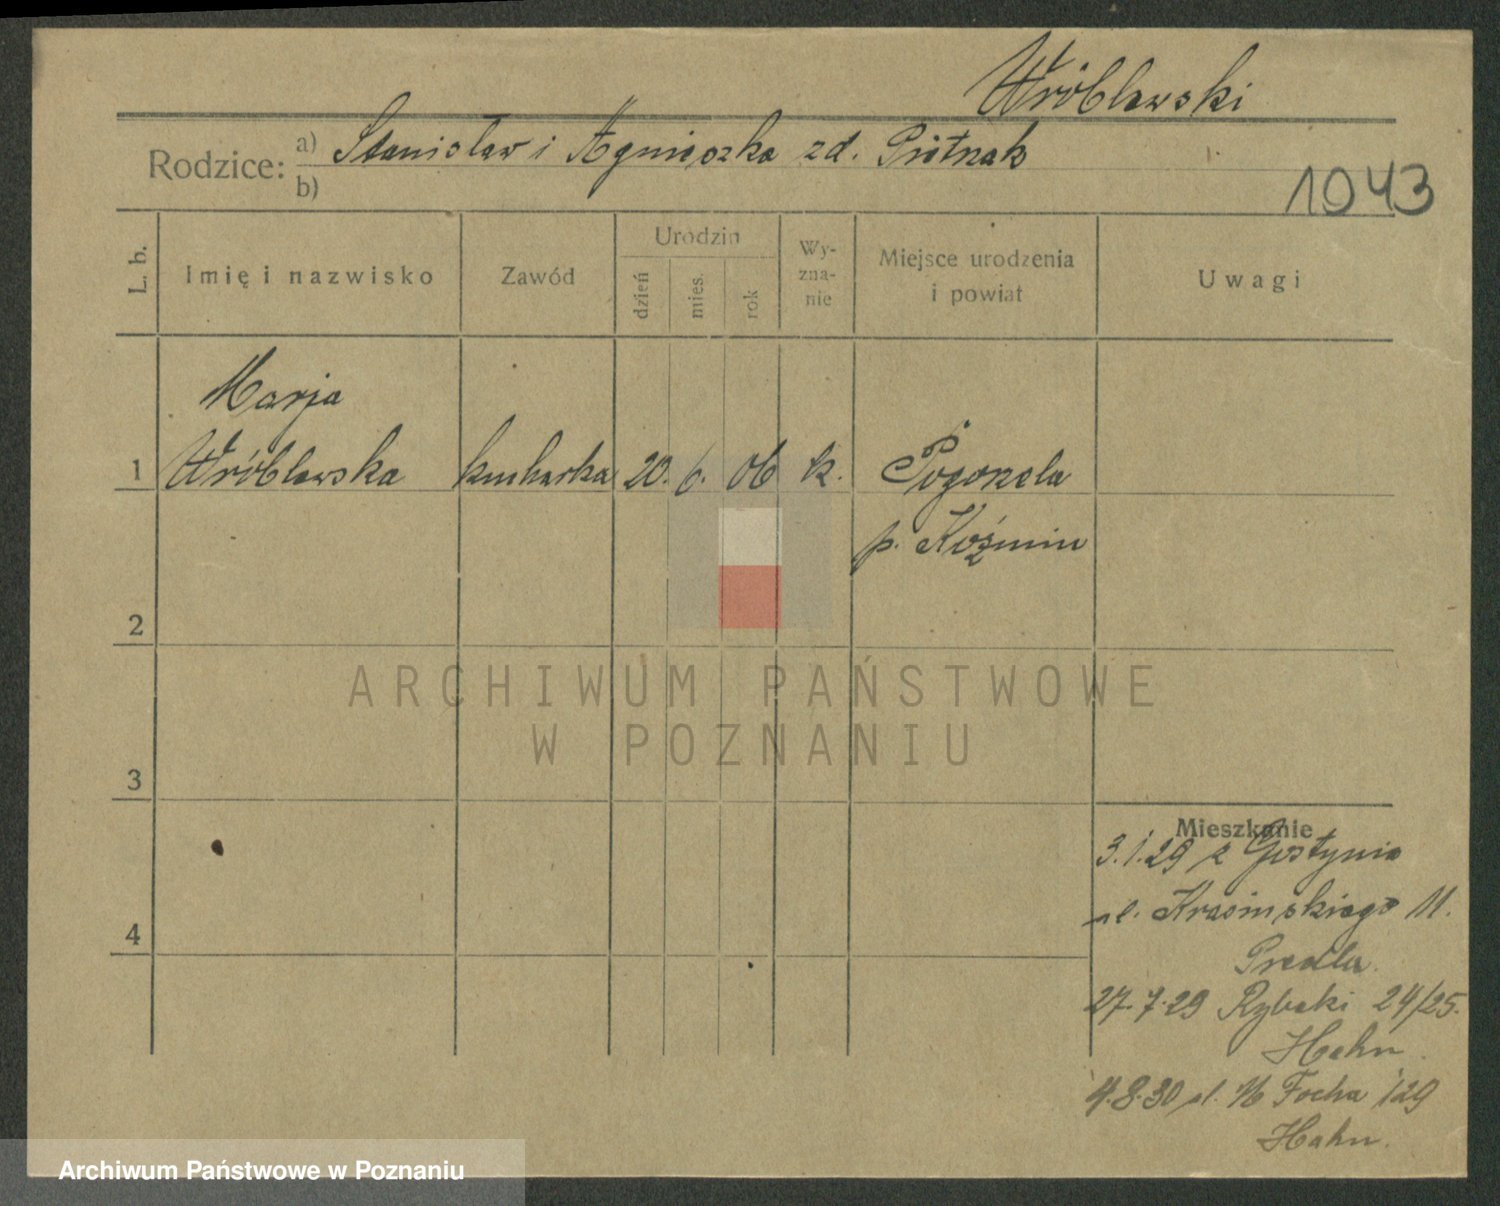 Wróblewski
Rodzice: a) Stanisław i Agnieszka zd.
b)
1943
L. b.
Imię i nazwisko
Zawód
Urodzin
dzień
mies.
rok
Wy-
zna-
nie
Miejsce urodzenia
i powiat
Uwagi
Marja
1 Wróblewska kucharka 20. 6. 06 k. Pogorzela
p. Koźmin
2
3
Mieszkanie
3.1.29 z Gostynia
ul. Krasińskiego 11.
4
27.7.29 Rybaki 24/25.
Hahn.
4.8.30 ul. M Focha 129
Hahn.
ARCHIWUM PAŃSTWOWE
W POZNANIU
Archiwum Państwowe w Poznaniu